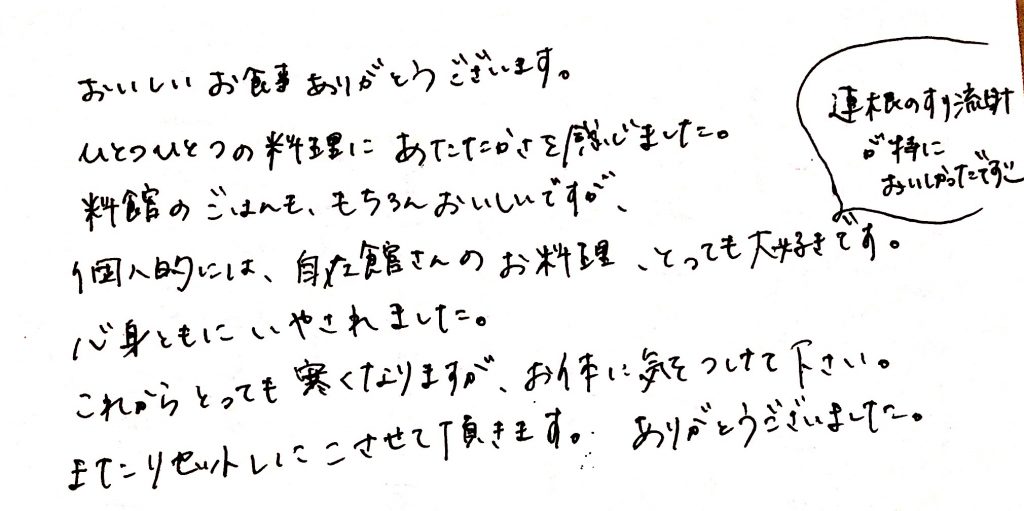 おいしいお食事ありがとうございます。
ひとつひとつの料理にあたたかさを感じました。
料館のごはんも、もちろんおいしいですが、
個人的には、自在館さんのお料理、とっても大好きです。
心身ともにいやされました。
これからとっても寒くなりますが、お体に気をつけて下さい。
またリセットしにこさせて頂きます。ありがとうございました。
連根のすり流し汁
が特に
おいしかったです